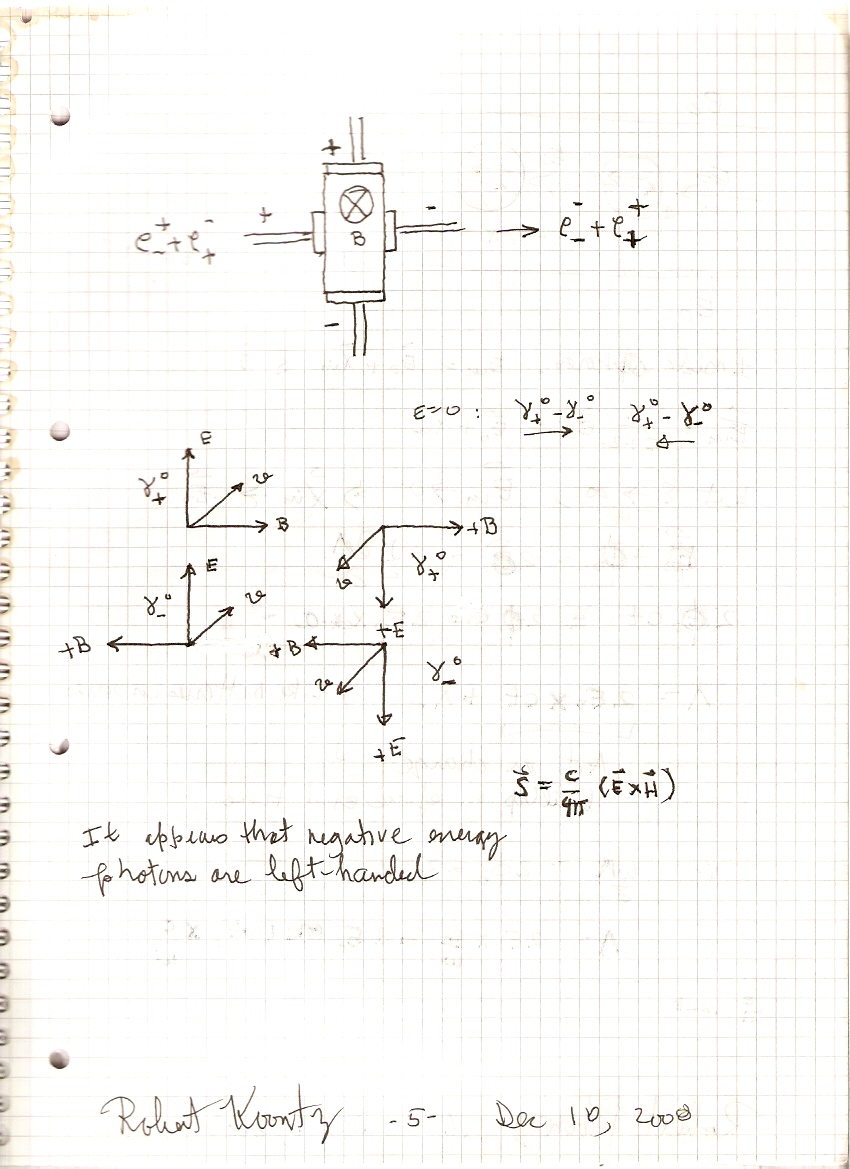 +
e₋⁺ + e₊⁻ + - → e₋⁻ + e₊⁺
B
-
E=0 : γ₊⁰ - γ₋⁰ γ₊⁰ - γ₋⁰
E
γ₊⁰ v
B +B
v γ₊⁰
E
γ₋⁰ v
+E
+B +B
v γ₋⁰
+E
S⃗ = c/4π (E⃗ x H⃗)
It appears that negative energy
photons are left-handed
Robert Koontz -5- Dec 10, 2008